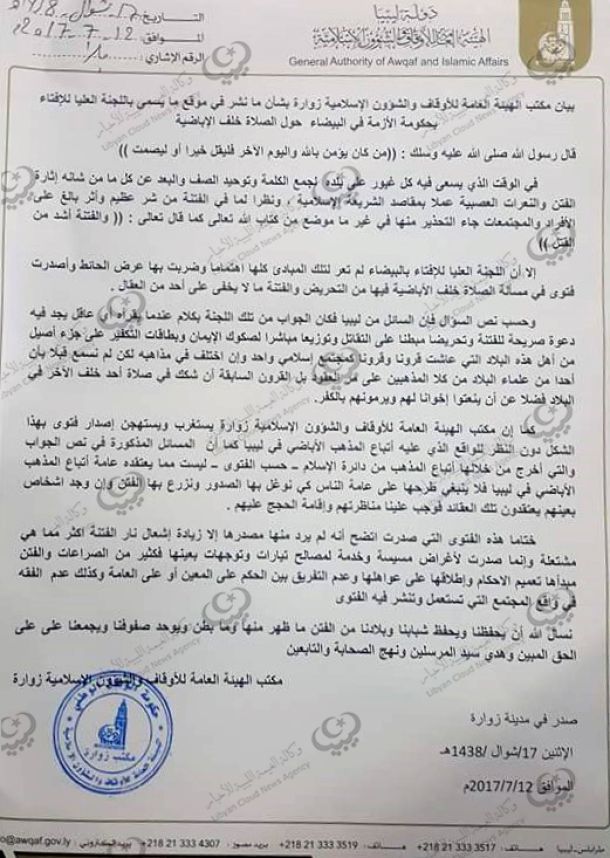 دولة ليبيا
الهيئة العامة للأوقاف والشؤون الإسلامية
General Authority of Awqaf and Islamic Affairs
التاريخ: 17 شوال 1438
الموافق: 12-7-2017
الرقم الإشاري:
بيان مكتب الهيئة العامة للأوقاف والشؤون الإسلامية زوارة بشأن ما نشر في موقع ما يسمى باللجنة العليا للإفتاء
بحكومة الأزمة في البيضاء حول الصلاة خلف الإباضية
قال رسول الله صلى الله عليه وسلك : ((من كان يؤمن بالله واليوم الآخر فليقل خيرا أو ليصمت ))
في الوقت الذي يسعى فيه كل غيور على بلده لجمع الكلمة وتوحيد الصف والبعد عن كل ما من شانه إثارة
الفتن والنعرات العصبية عملا بمقاصد الشريعة الإسلامية ، ونظرا لما في الفتنة من شر عظيم وأثر بالغ على
الأفراد والمجتمعات جاء التحذير منها في غير ما موضع من كتاب الله تعالى كما قال تعالى : (( والفتنة أشد من
القتل ))
إلا أن اللجنة العليا للإفتاء بالبيضاء لم تعر لتلك المبادئ كلها اهتماما وضربت بها عرض الحائط وأصدرت
فتوى في مسألة الصلاة خلف الأباضية فيها من التحريض والفتنة ما لا يخفى على أحد من العقال .
وحسب نص السؤال فإن السائل من ليبيا فكان الجواب من تلك اللجنة بكلام عندما يقرأه أي عاقل يجد فيه
دعوة صريحة للفتنة وتحريضا مبطنا على التقاتل وتوزيعا مباشرا لصكوك الإيمان وبطاقات التكفير على جزء أصيل
من أهل هذه البلاد التي عاشت قرونا وقرونا كمجتمع إسلامي واحد وإن اختلف في مذاهبه لكن لم نسمع قبلا بأن
أحدا من علماء البلاد من كلا المذهبين على مر العقود بل القرون السابقة أن شكك في صلاة أحد خلف الآخر في
البلاد فضلا عن أن ينعتوا إخوانا لهم ويرمونهم بالكفر.
كما إن مكتب الهيئة العامة للأوقاف والشؤون الإسلامية زوارة يستغرب ويستهجن إصدار فتوى بهذا
الشكل دون النظر للواقع الذي عليه أتباع المذهب الأباضي في ليبيا كما أن المسائل المذكورة في نص الجواب
والتي أخرج من خلالها أتباع المذهب من دائرة الإسلام ـ حسب الفتوى ـ ليست مما يعتقده عامة أتباع المذهب
الأباضي في ليبيا فلا ينبغي طرحها على عامة الناس كي نوغل بها الصدور ونزرع بها الفتن وإن وجد اشخاص
بعينهم يعتقدون تلك العقائد فوجب علينا مناظرتهم وإقامة الحجج عليهم .
ختاما هذه الفتوى التي صدرت اتضح أنه لم يرد منها مصدرها إلا زيادة إشعال نار الفتنة أكثر مما هي
مشتعلة وإنما صدرت لأغراض مسيسة وخدمة لمصالح تيارات وتوجهات بعينها فكثير من الصراعات والفتن
مبدأها تعميم الاحكام وإطلاقها على عواهلها وعدم التفريق بين الحكم على المعين أو على العامة وكذلك عدم الفقه
في واقع المجتمع التي تستعمل وتنشر فيه الفتوى
نسأل الله أن يحفظنا ويحفظ شبابنا وبلادنا من الفتن ما ظهر منها وما بطن ويوحد صفوفنا ويجمعنا على على
الحق المبين وهدى سيد المرسلين ونهج الصحابة والتابعين
مكتب الهيئة العامة للأوقاف والشؤون الإسلامية زوارة
حكومة الوفاق الوطني
مكتب زوارة
صدر في مدينة زوارة
الإثنين 17/شوال /1438هـ
الموافق 2017/7/12م
طرابلس - ليبيا هاتف: +218 21 333 3517 هاتف: +218 21 333 3519 بريد مصور: +218 21 333 4307 بريد إلكتروني: o@awqaf.gov.ly
وكالة السحابة الليبية للأخبار
Libyan Cloud News Agency